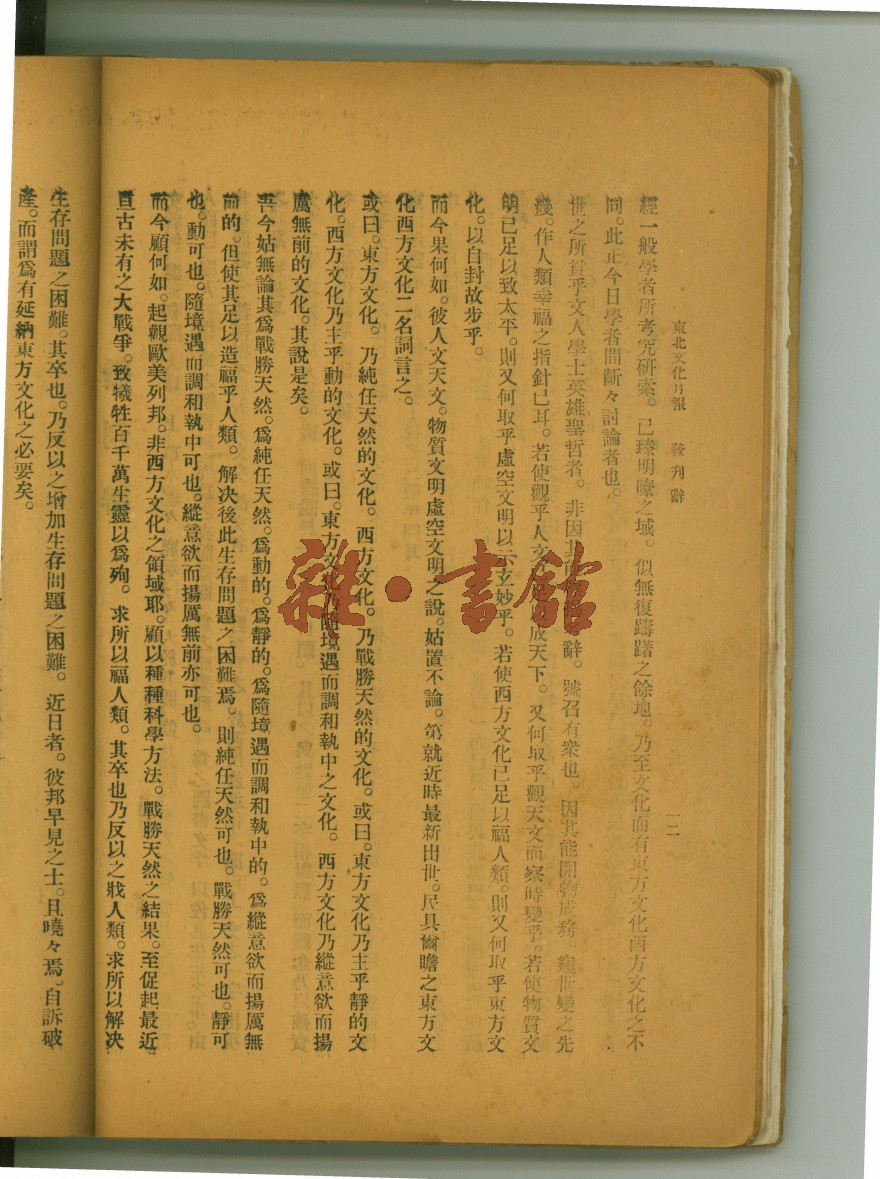 東北文化月報 發刊辭 一二
經一般學者所考究研索。已臻明瞭之域。似無復躊躇之餘地。乃至文化而有東方文化西方文化之不
同。此正今日學者間斷々討論者也。
世之所貴乎文人學士英雄聖哲者。非因其能 辭。號召有衆也。因其能開物成務。窺世變之先
幾。作人類幸福之指針已耳。若使觀乎人文 以放天下。又何取乎觀天文而察時變乎。若使物質文
明已足以致太平。則又何取乎虛空文明以示玄妙乎。若使西方文化已足以福人類。則又何取乎東方文
化。以自封故步乎。
而今果何如。彼人文天文。物質文明虛空文明之說。姑置不論。第就近時最新出世。民具爾瞻之東方文
化西方文化二名詞言之。
或曰。東方文化。乃純任天然的文化。西方文化。乃戰勝天然的文化。或曰。東方文化乃主乎靜的文
化。西方文化乃主乎動的文化。或曰。東方文化乃隨境遇而調和執中之文化。西方文化乃縱意欲而揚
厲無前的文化。其說是矣。
吾今姑無論其爲戰勝天然。爲純任天然。爲動的。爲靜的。爲隨境遇而調和執中的。爲縱意欲而揚厲無
前的。但使其足以造福乎人類。解决後此生存問題之困難焉。則純任天然可也。戰勝天然可也。靜可
也。動可也。隨境遇而調和執中可也。縱意欲而揚厲無前亦可也。
而今顧何如。起觀歐美列邦。非西方文化之領域耶。顧以種種科學方法。戰勝天然之結果。至促起最近
亘古未有之大戰爭。致犧牲百千萬生靈以爲殉。求所以福人類。其卒也乃反以之戕人類。求所以解决
生存問題之困難。其卒也。乃反以之增加生存問題之困難。近日者。彼邦早見之士。且曉々焉。自訴破
產。而謂爲有延納東方文化之必要矣。
雜·書館